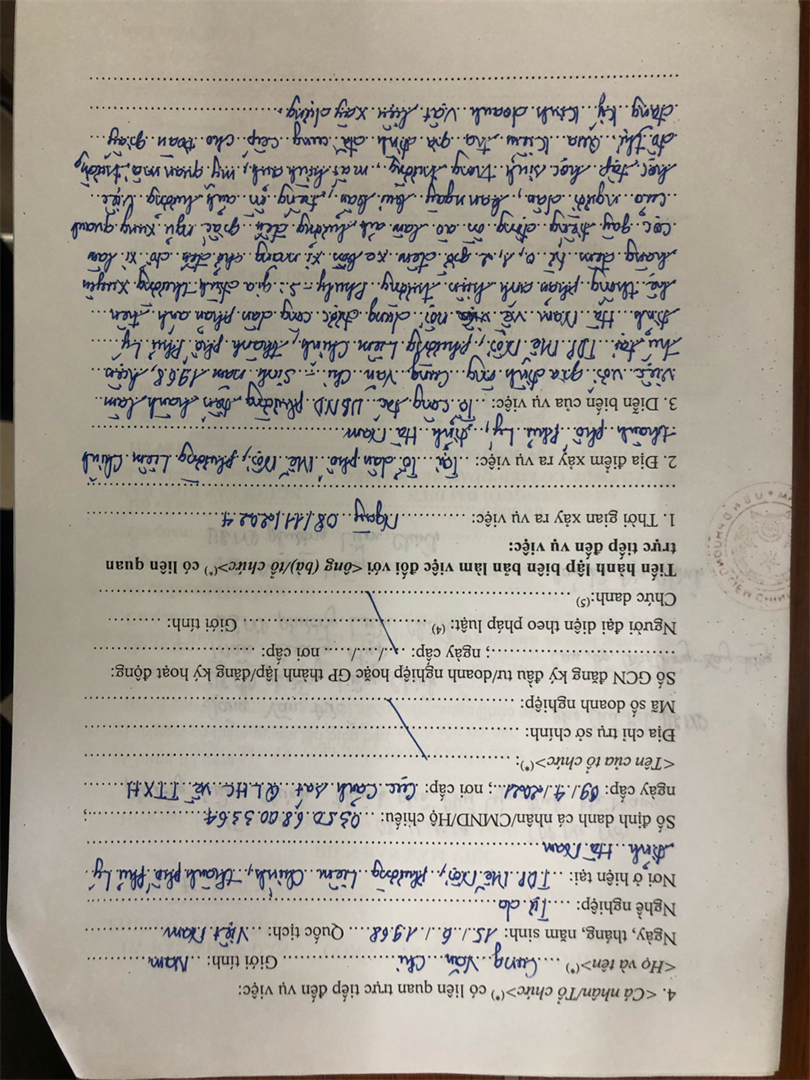 4. <Cá nhân/Tổ chức>(*) có liên quan trực tiếp đến vụ việc:
<Họ và tên>(*) .... Cung Văn Chi ............ Giới tính: .. Nam ..........
Ngày, tháng, năm sinh: ..15../..6../..1968.... Quốc tịch: ..Việt Nam..........
Nghề nghiệp: ....Tự do............
Nơi ở hiện tại: ..TDP Mễ Nội, phường Liêm Chính, thành phố Phủ Lý
tỉnh Hà Nam............
Số định danh cá nhân/CMND/Hộ chiếu: ...035068003364............;
ngày cấp: 09/.9./.2021..; nơi cấp: Cục Cảnh sát QLHC về TTXH
<Tên của tổ chức>(*): ............
Địa chỉ trụ sở chính: ............
Mã số doanh nghiệp: ............
Số GCN đăng ký đầu tư/doanh nghiệp hoặc GP thành lập/đăng ký hoạt động:
............; ngày cấp: ..../..../.....; nơi cấp: ............
Người đại diện theo pháp luật: (4) ............ Giới tính: ..........
Chức danh:(5) ............
Tiến hành lập biên bản làm việc đối với <ông (bà)/tổ chức>(*) có liên quan
trực tiếp đến vụ việc:
1. Thời gian xảy ra vụ việc: ............ Ngày 08/11/2024
2. Địa điểm xảy ra vụ việc: ..Tại Tổ dân phố Mễ Nội, phường Liêm Chính
thành phố Phủ Lý, tỉnh Hà Nam
3. Diễn biến của vụ việc: ..Tổ công tác UBND phường tiến hành làm
việc với gia đình ông Cung Văn Chi - Sinh năm 1968, hiện
trú tại TDP Mễ Nội, phường Liêm Chính, thành phố Phủ Lý
tỉnh Hà Nam về nội dung được công dân phản ánh trên
hệ thống phản ánh hiện trường Phủ Lý - S: gia đình thường xuyên
hàng đêm từ 0, 1, 2 giờ đêm xe bồn xi măng chở đến
gây tiếng động ồn ào làm ảnh hưởng đến giấc ngủ xung quanh
của người dân, ban ngày bụi bẩn, tiếng ồn ảnh hưởng việc
học tập học sinh trong trường, mất cảnh mỹ quan mà trường
đô thị. Qua kiểm tra gia đình đã cung cấp cho đoàn giấy
đăng ký kinh doanh vật liệu xây dựng.